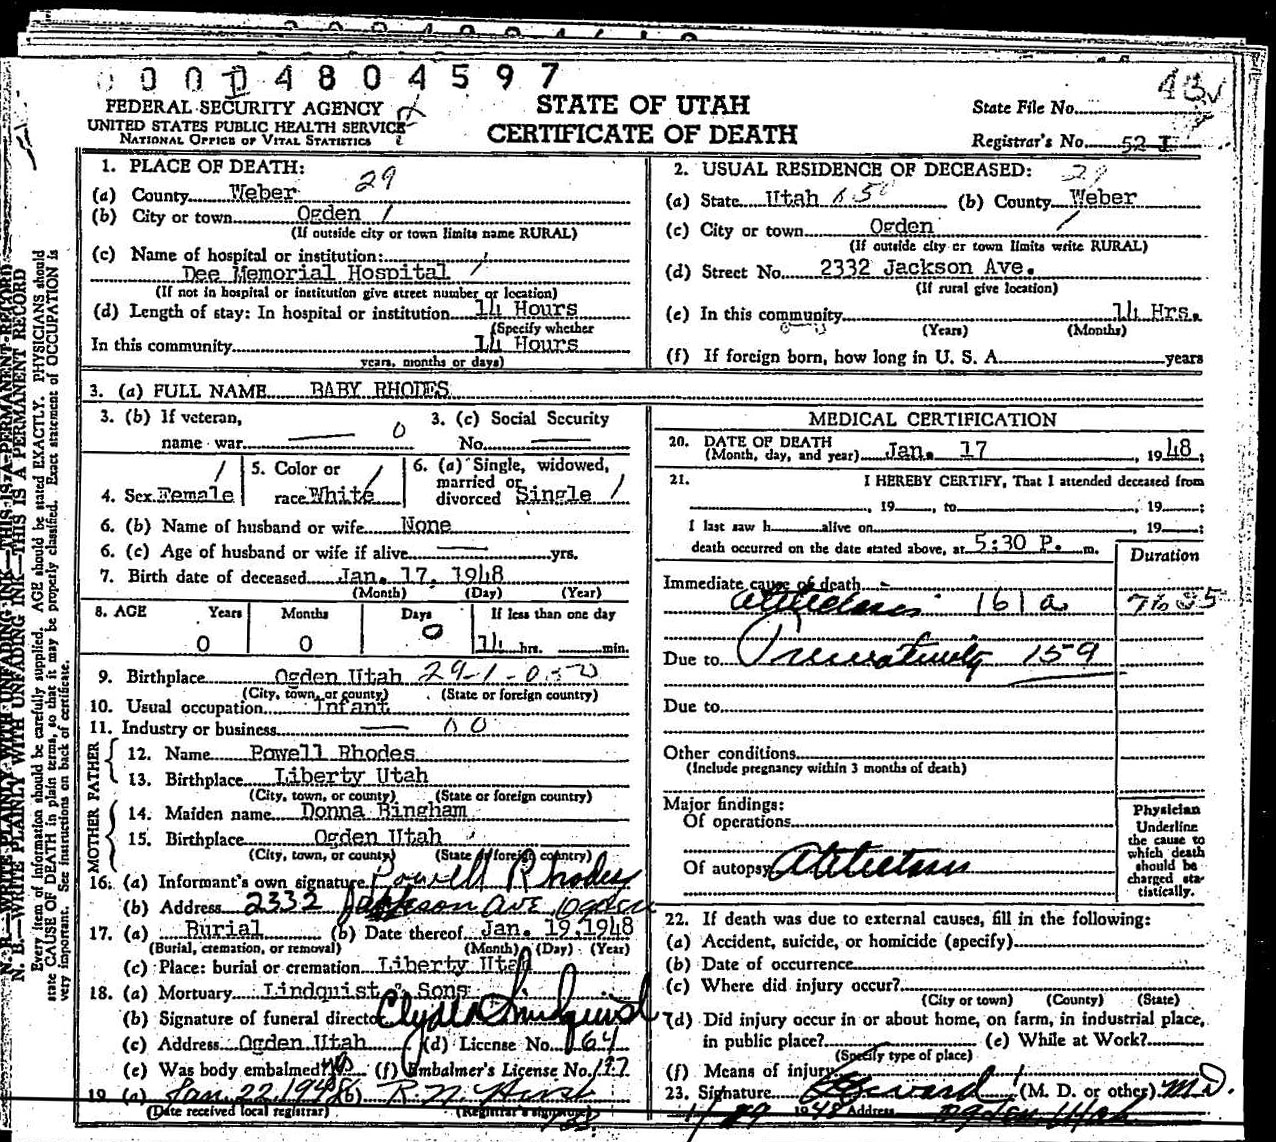 0 0 0 0 4 8 0 4 5 9 7
43
FEDERAL SECURITY AGENCY
UNITED STATES PUBLIC HEALTH SERVICE
NATIONAL OFFICE OF VITAL STATISTICS
STATE OF UTAH
CERTIFICATE OF DEATH
State File No.
Registrar's No. 52 I
1. PLACE OF DEATH: 29
(a) County Weber
(b) City or town Ogden 1
(If outside city or town limits name RURAL)
(c) Name of hospital or institution:
Dee Memorial Hospital 1
(If not in hospital or institution give street number or location)
(d) Length of stay: In hospital or institution 14 Hours
(Specify whether
In this community 14 Hours
years, months or days)
2. USUAL RESIDENCE OF DECEASED: 29
(a) State Utah (b) County Weber
(c) City or town Ogden 1
(If outside city or town limits write RURAL)
(d) Street No. 2332 Jackson Ave.
(If rural give location)
(e) In this community 14 Hrs.
(Years) (Months)
(f) If foreign born, how long in U. S. A. years
3. (a) FULL NAME BABY RHODES
3. (b) If veteran,
name war 0
3. (c) Social Security
No.
4. Sex Female 1
5. Color or
race White 1
6. (a) Single, widowed,
married or
divorced Single 1
6. (b) Name of husband or wife None
6. (c) Age of husband or wife if alive yrs.
7. Birth date of deceased Jan. 17, 1948
(Month) (Day) (Year)
8. AGE Years Months Days If less than one day
0 0 0 14 hrs. min.
9. Birthplace Ogden Utah 29-1-050
(City, town, or county) (State or foreign country)
10. Usual occupation Infant
11. Industry or business 00
FATHER
12. Name Powell Rhodes
13. Birthplace Liberty Utah
(City, town, or county) (State or foreign country)
MOTHER
14. Maiden name Donna Bingham
15. Birthplace Ogden Utah
(City, town, or county) (State or foreign country)
16. (a) Informant's own signature Powell Rhodes
(b) Address 2332 Jackson Ave Ogden
17. (a) Burial (b) Date thereof Jan. 19, 1948
(Burial, cremation, or removal) (Month) (Day) (Year)
(c) Place: burial or cremation Liberty Utah
18. (a) Mortuary Lindquist & Sons
(b) Signature of funeral director Clyde Lindquist
(c) Address Ogden Utah (d) License No. 64
(e) Was body embalmed? No (f) Embalmer's License No. 177
19. (a) Jan. 22, 1948 (b) R. N. Hirst
(Date received local registrar) (Registrar's signature)
MEDICAL CERTIFICATION
20. DATE OF DEATH
(Month, day, and year) Jan. 17, 1948.
21. I HEREBY CERTIFY, That I attended deceased from
, 19 , to , 19 ;
I last saw h alive on , 19 ;
death occurred on the date stated above, at 5:30 P. m.
Duration
Immediate cause of death
Atelectasis 161a
Due to Prematurity 159
Due to
Other conditions
(Include pregnancy within 3 months of death)
Major findings:
Of operations
Of autopsy Atelectasis
Physician
Underline
the cause to
which death
should be
charged sta-
tistically.
22. If death was due to external causes, fill in the following:
(a) Accident, suicide, or homicide (specify)
(b) Date of occurrence
(c) Where did injury occur?
(City or town) (County) (State)
(d) Did injury occur in or about home, on farm, in industrial place,
in public place? (e) While at Work?
(Specify type of place)
(f) Means of injury
23. Signature (M. D. or other) M.D.
1/29 1948 Address Ogden Utah
N. B.—WRITE PLAINLY WITH UNFADING INK—THIS IS A PERMANENT RECORD
N. B.—WRITE PLAINLY WITH UNFADING INK—THIS IS A PERMANENT RECORD
Every item of information should be carefully supplied. AGE should be stated EXACTLY. PHYSICIANS should
state CAUSE OF DEATH in plain terms, so that it may be properly classified. Exact statement of OCCUPATION is
very important. See instructions on back of certificate.